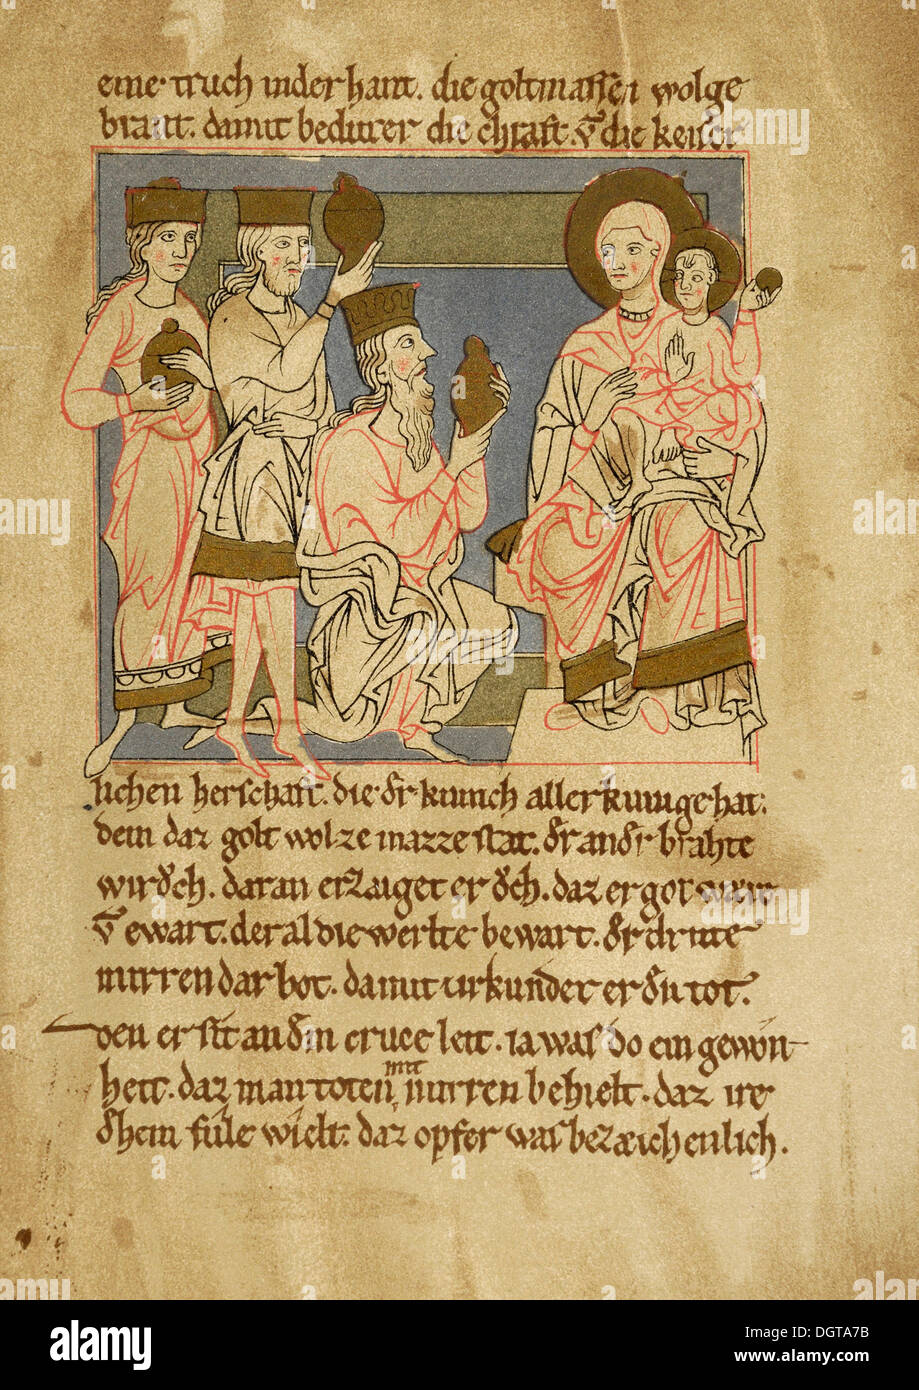 eine truch in der hant. die goltmassen wolge
brant. damit beduter die chraft. v̄ die keiser
lichen herschaft. die dr kunich aller kunige hat:
dem daz golt wol ze mazze stat. dr andr brahte
wirǒch. daran erzaiget er ǒch. daz er got ware
v̄ ewart. der al die werlte bewart. dr dritte
mirren dar bot. damit urkunder er dn tot.
den er sit an dm cruce leit. ia was do ein gewon
heit. daz man toten mit mirren behielt. daz ire
dhein fůle wielt: daz opfer was bezæichenlich.
alamy
Image ID: DGTA7B
www.alamy.com